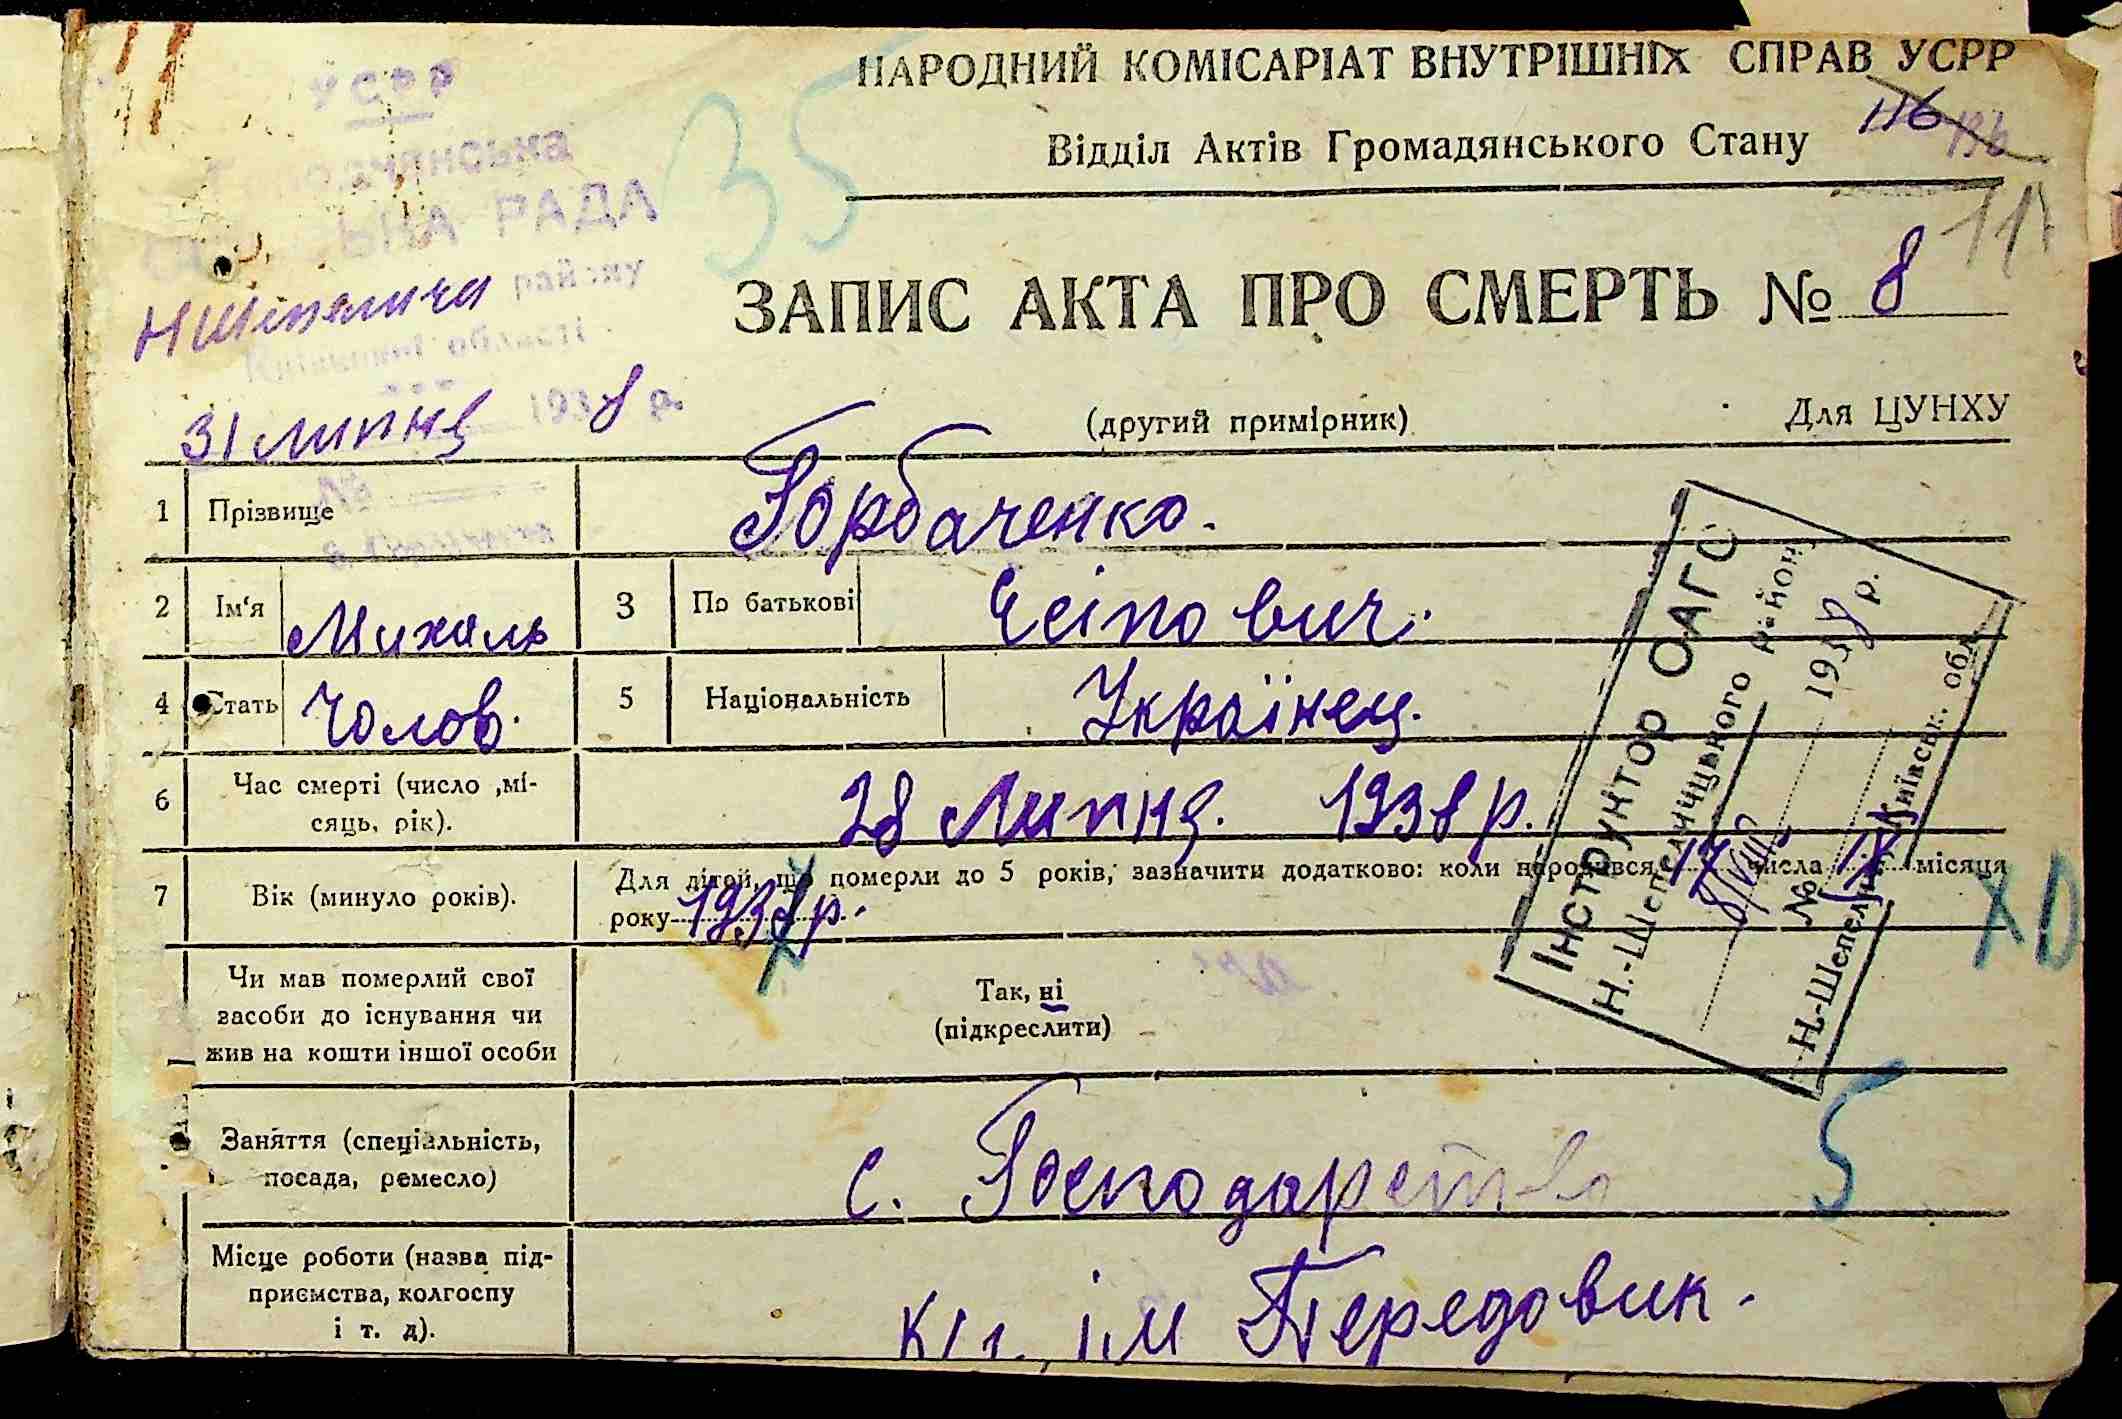 НАРОДНИЙ КОМІСАРІАТ ВНУТРІШНІХ СПРАВ УСРР
Відділ Актів Громадянського Стану
116
УСРР
35
РАДА
Н Шепелича району
Київської області
31 липня 1938 р.
ЗАПИС АКТА ПРО СМЕРТЬ № 8
(другий примірник)
Для ЦУНХУ
1 Прізвище Горбаченко.
2 Ім'я Михаль 3 По батькові Єсіпович.
4 Стать Чолов. 5 Національність Українец.
6 Час смерті (число ,мі-
сяць, рік). 28 Липня. 1938 р.
7 Вік (минуло років). Для дітей, що померли до 5 років, зазначити додатково: коли народився 17 числа IX місяця
року 1937 р.
Чи мав померлий свої
засоби до існування чи
жив на кошти іншої особи
Так, ні
(підкреслити)
Заняття (спеціальність,
посада, ремесло)
с. Господарство
5
Місце роботи (назва під-
приємства, колгоспу
і т. д).
К/г. ім Передовик.
Інструктор ОАГС
Н.-Шепеличцького району
8/VIII 1938 р.
№
Н.-Шепеличі Київськ. обл.